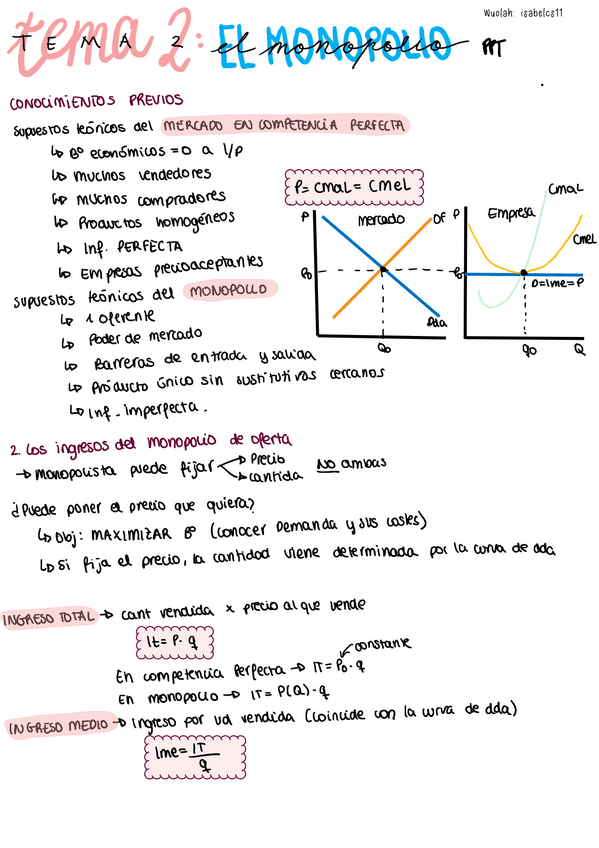 Wuolah: isabelcs11
tema 2: EL MONOPOLIO PPT
TEMA 2 el monopolio
CONOCIMIENTOS PREVIOS
Supuestos teóricos del MERCADO EN COMPETENCIA PERFECTA
↳ Bº económicos = 0 a l/p
↳ Muchos vendedores
↳ Muchos compradores
↳ Productos homogéneos
↳ Inf. PERFECTA
↳ Empresas precioaceptantes
P = CMaL = CMeL
P Mercado OF
P0
Dda
Q0
P Empresa CMaL
CMeL
P0
D=Ime=P
q0 Q
Supuestos teóricos del MONOPOLIO
↳ 1 oferente
↳ Poder de mercado
↳ Barreras de entrada y salida
↳ Producto único sin sustitutivos cercanos
↳ Inf. Imperfecta.
2. Los ingresos del monopolio de oferta
→ Monopolista puede fijar → Precio
→ cantida NO ambas
¿Puede poner el precio que quiera?
↳ Obj: MAXIMIZAR Bº (conocer Demanda y sus costes)
↳ Si fija el precio, la cantidad viene determinada por la curva de dda
INGRESO TOTAL → cant vendida x precio al que vende
It = P · q
constante
En competencia Perfecta → IT = P0 · q
En monopolio → IT = P(Q) · q
INGRESO MEDIO → Ingreso por ud vendida (coincide con la curva de dda)
Ime = IT
q